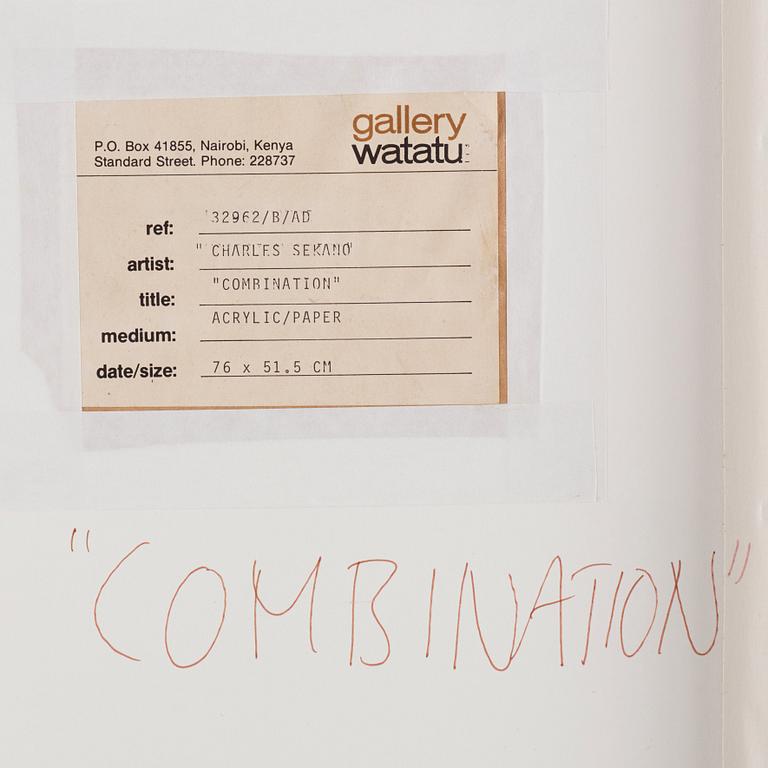 gallery
watatu
P.O. Box 41855, Nairobi, Kenya
Standard Street. Phone: 228737
ref: 32962/B/AD
artist: "CHARLES SEKANO'
title: "COMBINATION"
medium: ACRYLIC/PAPER
date/size: 76 x 51.5 CM
"COMBINATION"